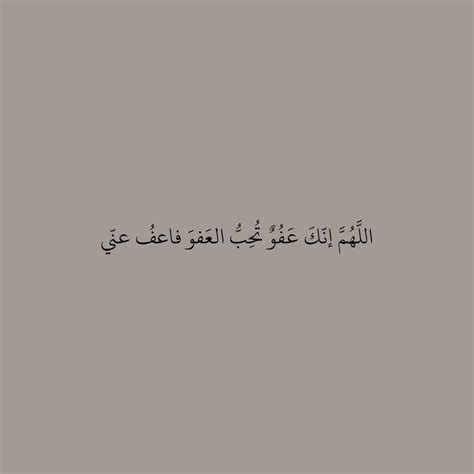 اللَّهُمَّ إنّكَ عَفُوٌ تُحِبُّ العَفوَ فاعفُ عنّي